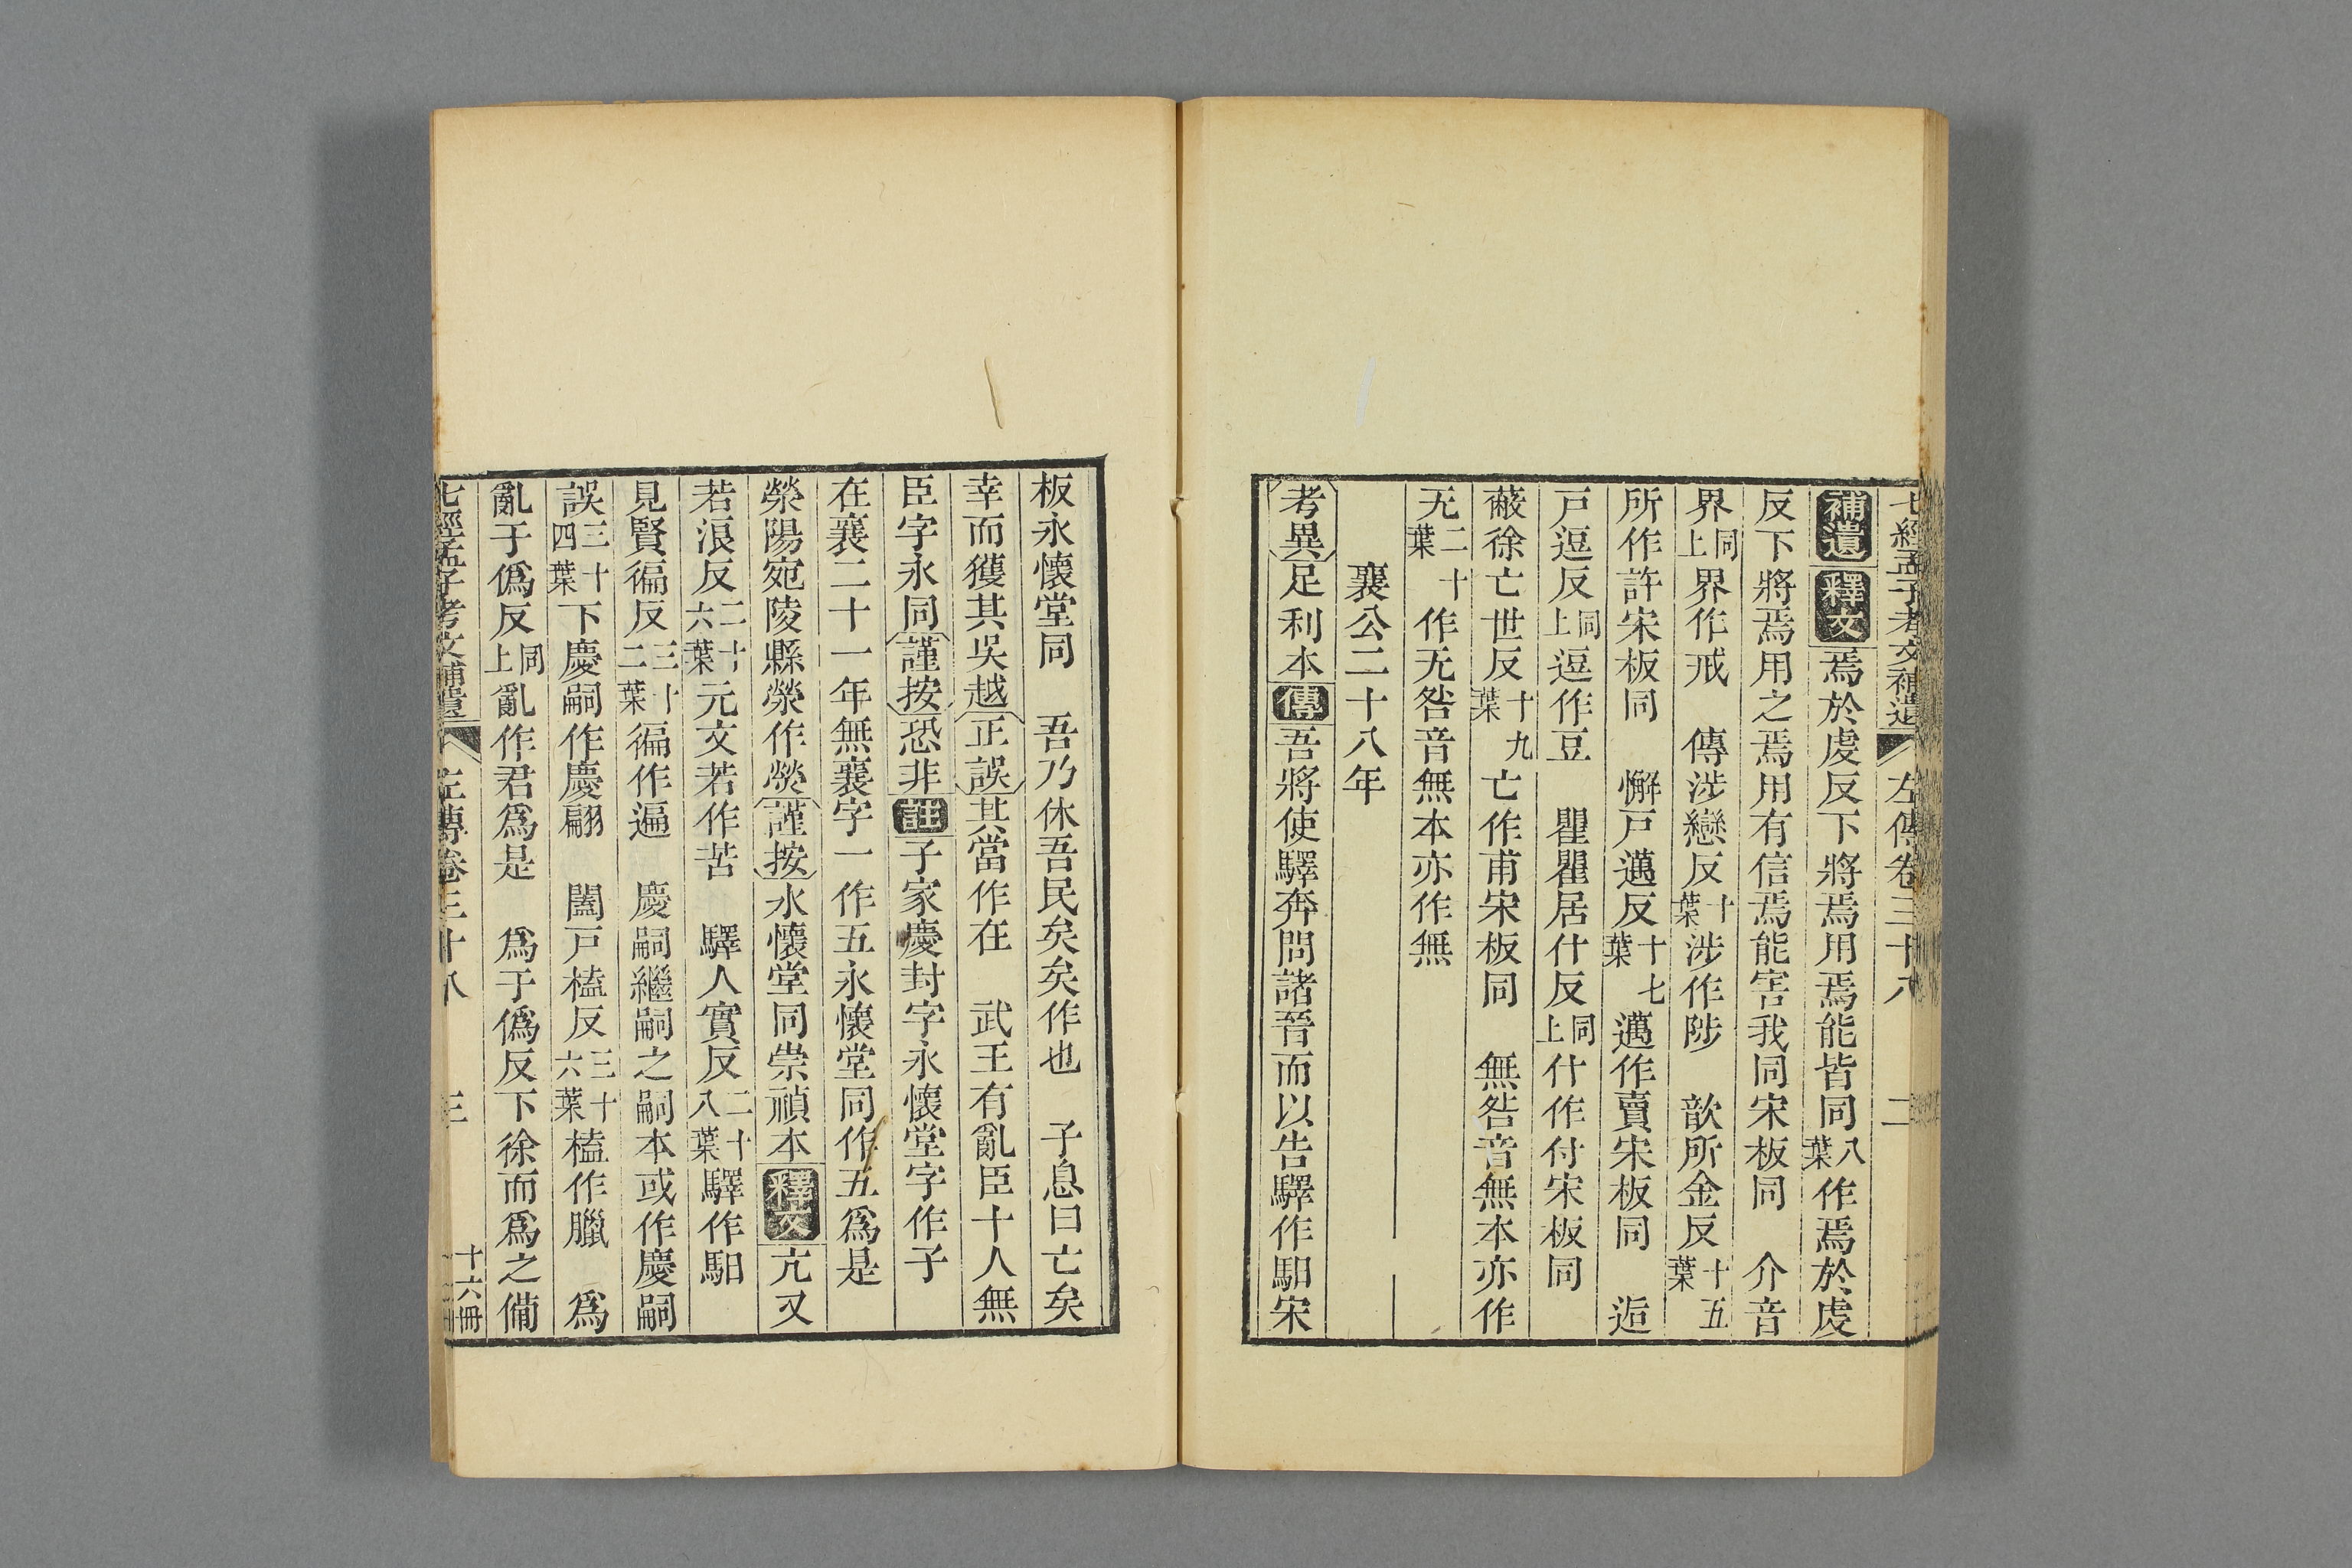 七經孟子考文補遺 左傳卷三十八 二
補遺 釋文 焉於虔反下將焉用焉能皆同八葉作焉於虔
反下將焉用之焉用有信焉能害我同宋板同 介音
界同上界作戒 傳涉戀反十葉涉作陟 歆所金反十五葉
所作許宋板同 懈戸邁反十七葉邁作賣宋板同 逅
戸逗反同上逗作豆 瞿瞿居什反同上什作付宋板同
蔽徐亡世反十九葉亡作甫宋板同 無咎音無本亦作
无二十葉作无咎音無本亦作無
襄公二十八年
考異 足利本 傳 吾將使驛奔問諸晉而以告驛作馹宋
板永懷堂同 吾乃休吾民矣矣作也 子息曰亡矣
幸而獲其吳越 正誤 其當作在 武王有亂臣十人無
臣字永同 謹按 恐非 註 子家慶封字永懷堂字作子
在襄二十一年無襄字一作五永懷堂同作五爲是
滎陽宛陵縣滎作熒 謹按 永懷堂同崇禎本 釋文 亢又
若浪反二十六葉元文若作苦 驛人實反二十八葉驛作馹
見賢徧反三十二葉徧作遍 慶嗣繼嗣之嗣本或作慶嗣
誤三十四葉下慶嗣作慶翩 闔戸榼反三十六葉榼作臘 爲
亂于僞反同上亂作君爲是 爲于僞反下徐而爲之備
七經孟子考文補遺 左傳卷三十八 三 十六冊